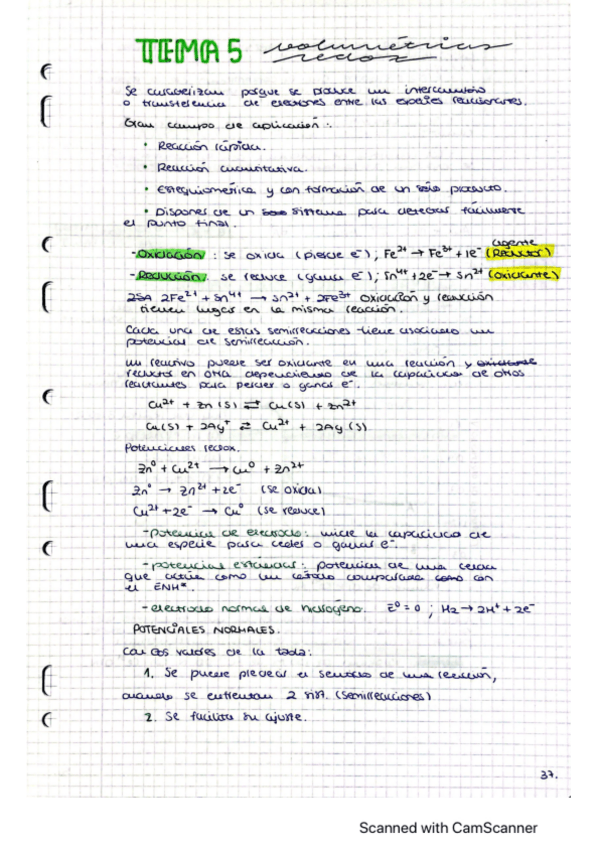 TEMA 5 volumétrias
redox
Se caracterizan porque se produce un intercambio
o transferencia de electrones entre las especies reaccionantes.
Gran campo de aplicación:.
• Reacción rápida.
• Reacción cuantitativa.
• Estequiométrica y con formación de un sólo producto.
• Disponer de un sistema para detectar fácilmente
el punto final.
agente
- Oxidación : se oxida (pierde e⁻), Fe²⁺ → Fe³⁺ + 1e⁻ (Reductor)
- Reducción : se reduce (gana e⁻); Sn⁴⁺ + 2e⁻ → Sn²⁺ (oxidante)
2Fe²⁺ + Sn⁴⁺ → Sn²⁺ + 2Fe³⁺ oxidación y reducción
tienen lugar en la misma reacción.
Cada una de estas semirreacciones tiene asociado un
potencial de semirreacción.
Un reactivo puede ser oxidante en una reacción y
reductor en otra dependiendo de la capacidad de otros
reactantes para perder o ganar e⁻.
Cu²⁺ + Zn (s) ⇄ Cu(s) + Zn²⁺
Cu(s) + 2Ag⁺ ⇄ Cu²⁺ + 2Ag (s)
Potenciales redox.
Zn⁰ + Cu²⁺ → Cu⁰ + Zn²⁺
Zn⁰ → Zn²⁺ + 2e⁻ (se oxida)
Cu²⁺ + 2e⁻ → Cu⁰ (se reduce)
- Potencial de electrodo : mide la capacidad de
una especie para ceder o ganar e⁻.
- potencial estándar : potencial de una celda
que actúa como un cátodo comparada como con
el ENH*.
- electrodo normal de hidrógeno. E⁰ = 0 ; H₂ → 2H⁺ + 2e⁻
POTENCIALES NORMALES.
Con los valores de la tabla:
1. Se puede predecir el sentido de una reacción,
cuando se enfrentan 2 sist. (semirreacciones)
2. Se facilita su ajuste.
37.
Scanned with CamScanner